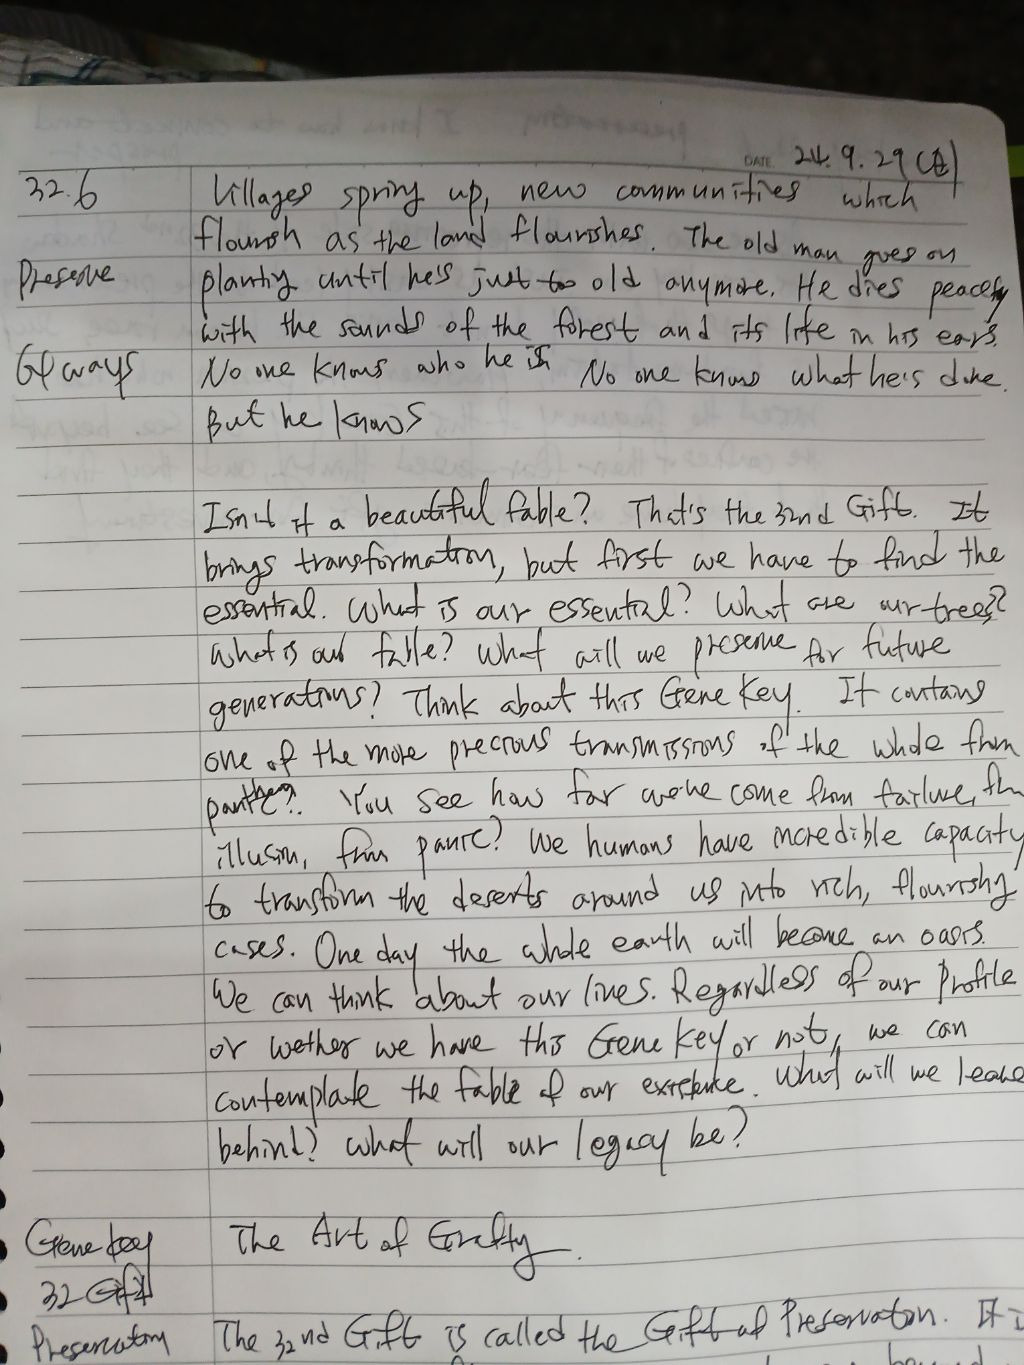 DATE 24. 9. 29
32.6 Villages spring up, new communities which
flourish as the land flourishes. The old man goes on
Preserve planting until he's just to old anymore. He dies peacefully
with the sounds of the forest and its life in his ears.
Always No one knows who he is No one knows what he's done.
But he knows
Isn't it a beautiful fable? That's the 32nd Gift. It
brings transformation, but first we have to find the
essential. What is our essential? What are our trees?
What is our fable? What will we preserve for future
generations? Think about this Gene Key. It contains
one of the more precious transmissions of the whole from
You see how far we've come from failure, from
illusion, from panic? We humans have incredible capacity
to transform the deserts around us into rich, flourishing
cases. One day the whole earth will become an oasis.
We can think about our lives. Regardless of our Profile
or wether we have this Gene Key or not, we can
contemplate the fable of our existence. What will we leave
behind? What will our legacy be?
Gene key The Art of Grafting
32 Gift
Preservation The 32nd Gift is called the Gift of Preservation. It i